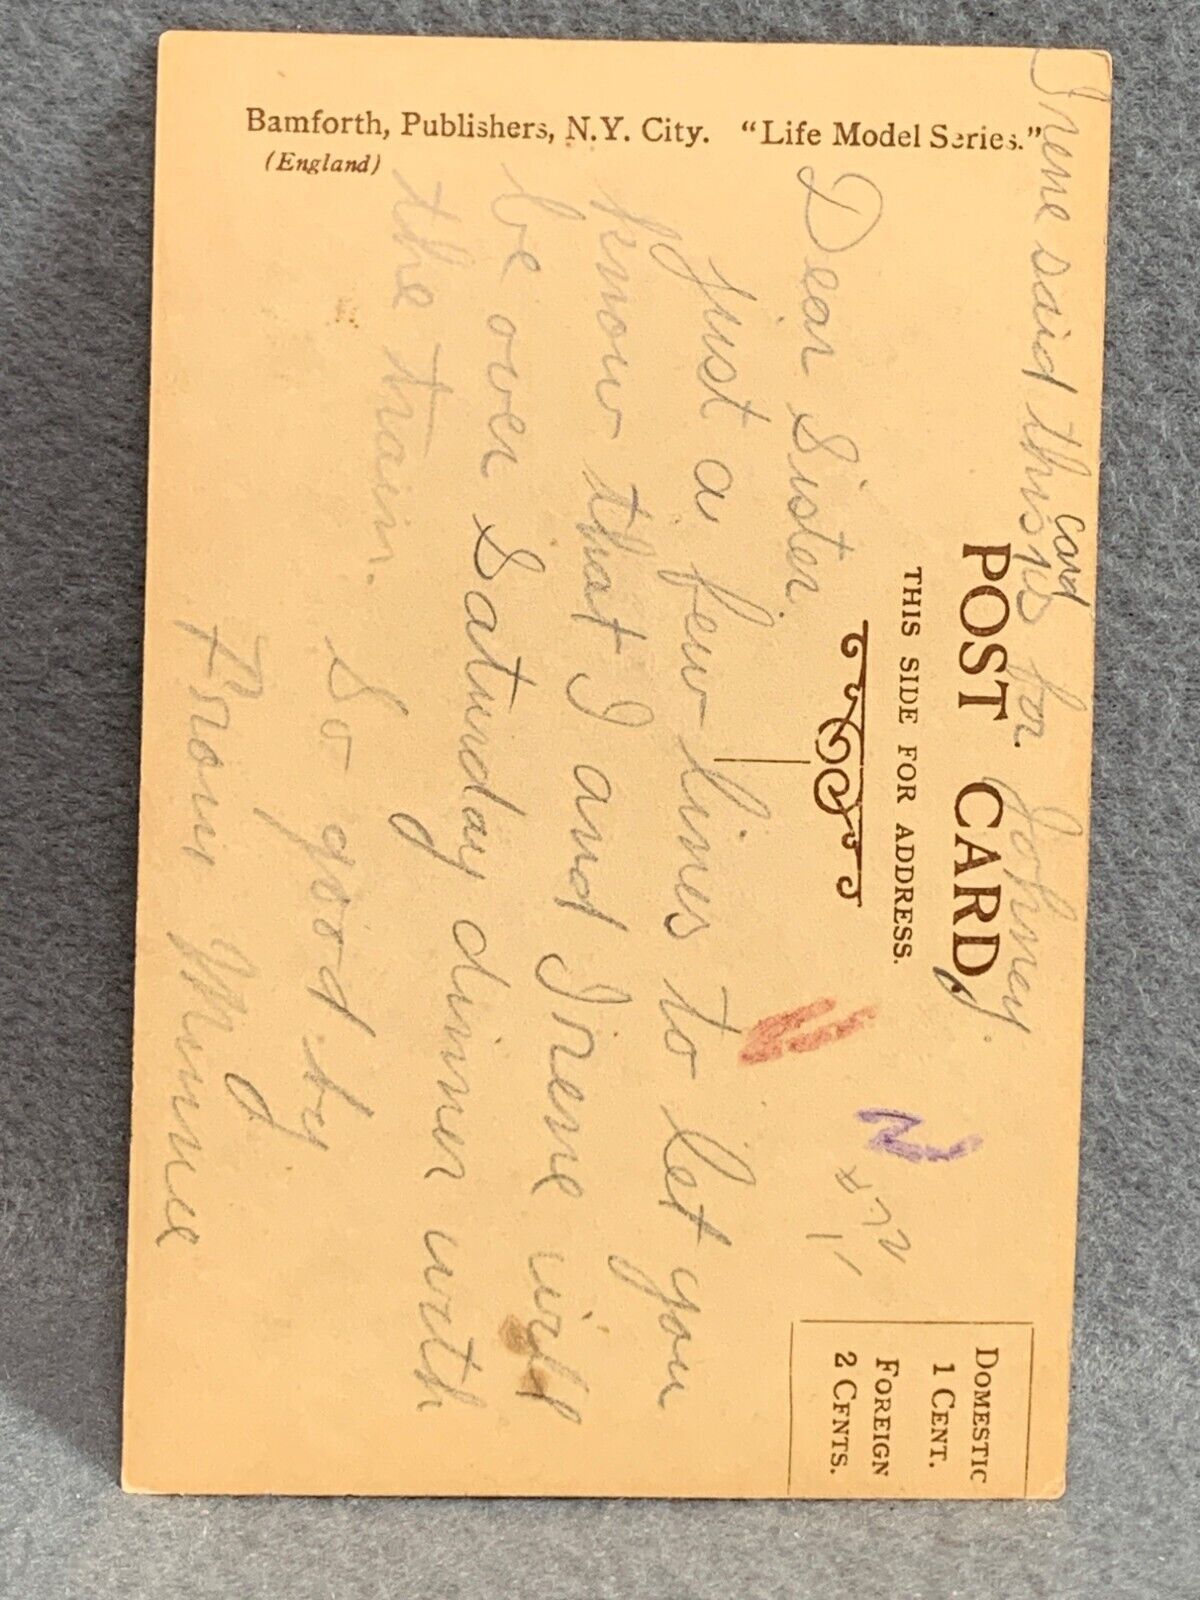 Irene said this card is for Johney.
POST CARD
THIS SIDE FOR ADDRESS.
DOMESTIC
1 CENT.
FOREIGN
2 CENTS.
Bamforth, Publishers, N.Y. City. "Life Model Series."
(England)
Dear Sister
just a few lines to let you
know that I and Irene will
be over Saturday dinner with
the train.
So good by
From Minnie